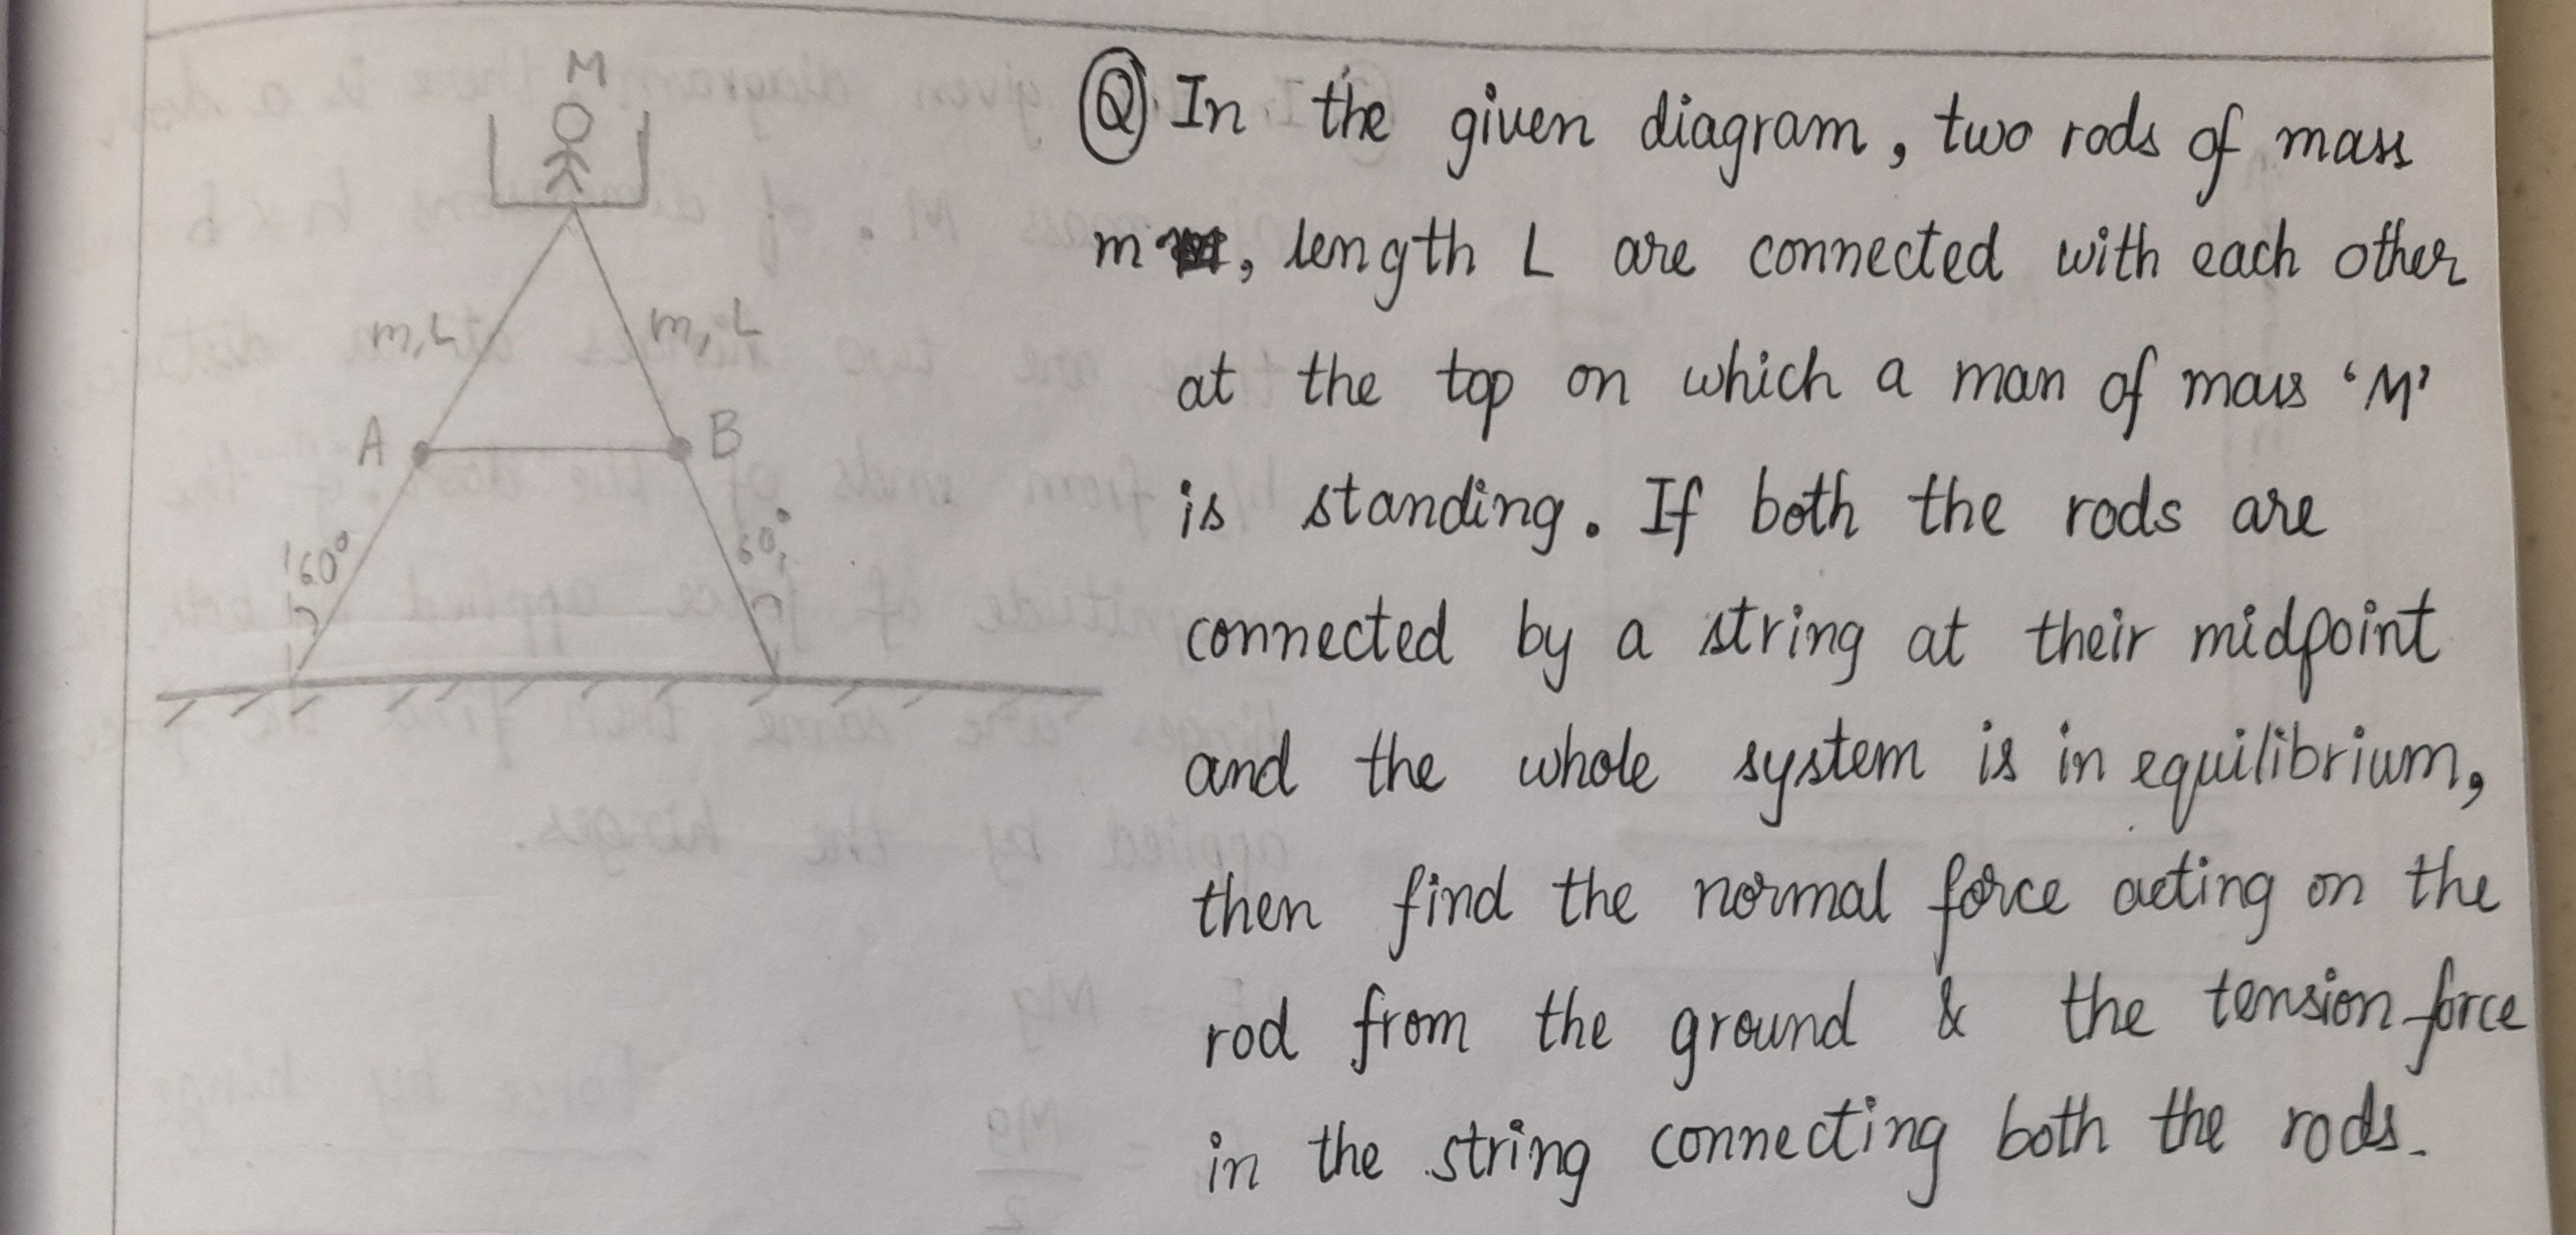 M
Q. In the given diagram, two rods of mass
m, length L are connected with each other
m,L
m, L
at the top on which a man of mass ‘M’
A
B
is standing. If both the rods are
60°
60°
connected by a string at their midpoint
and the whole system is in equilibrium,
then find the normal force acting on the
rod from the ground & the tension force
in the string connecting both the rods.